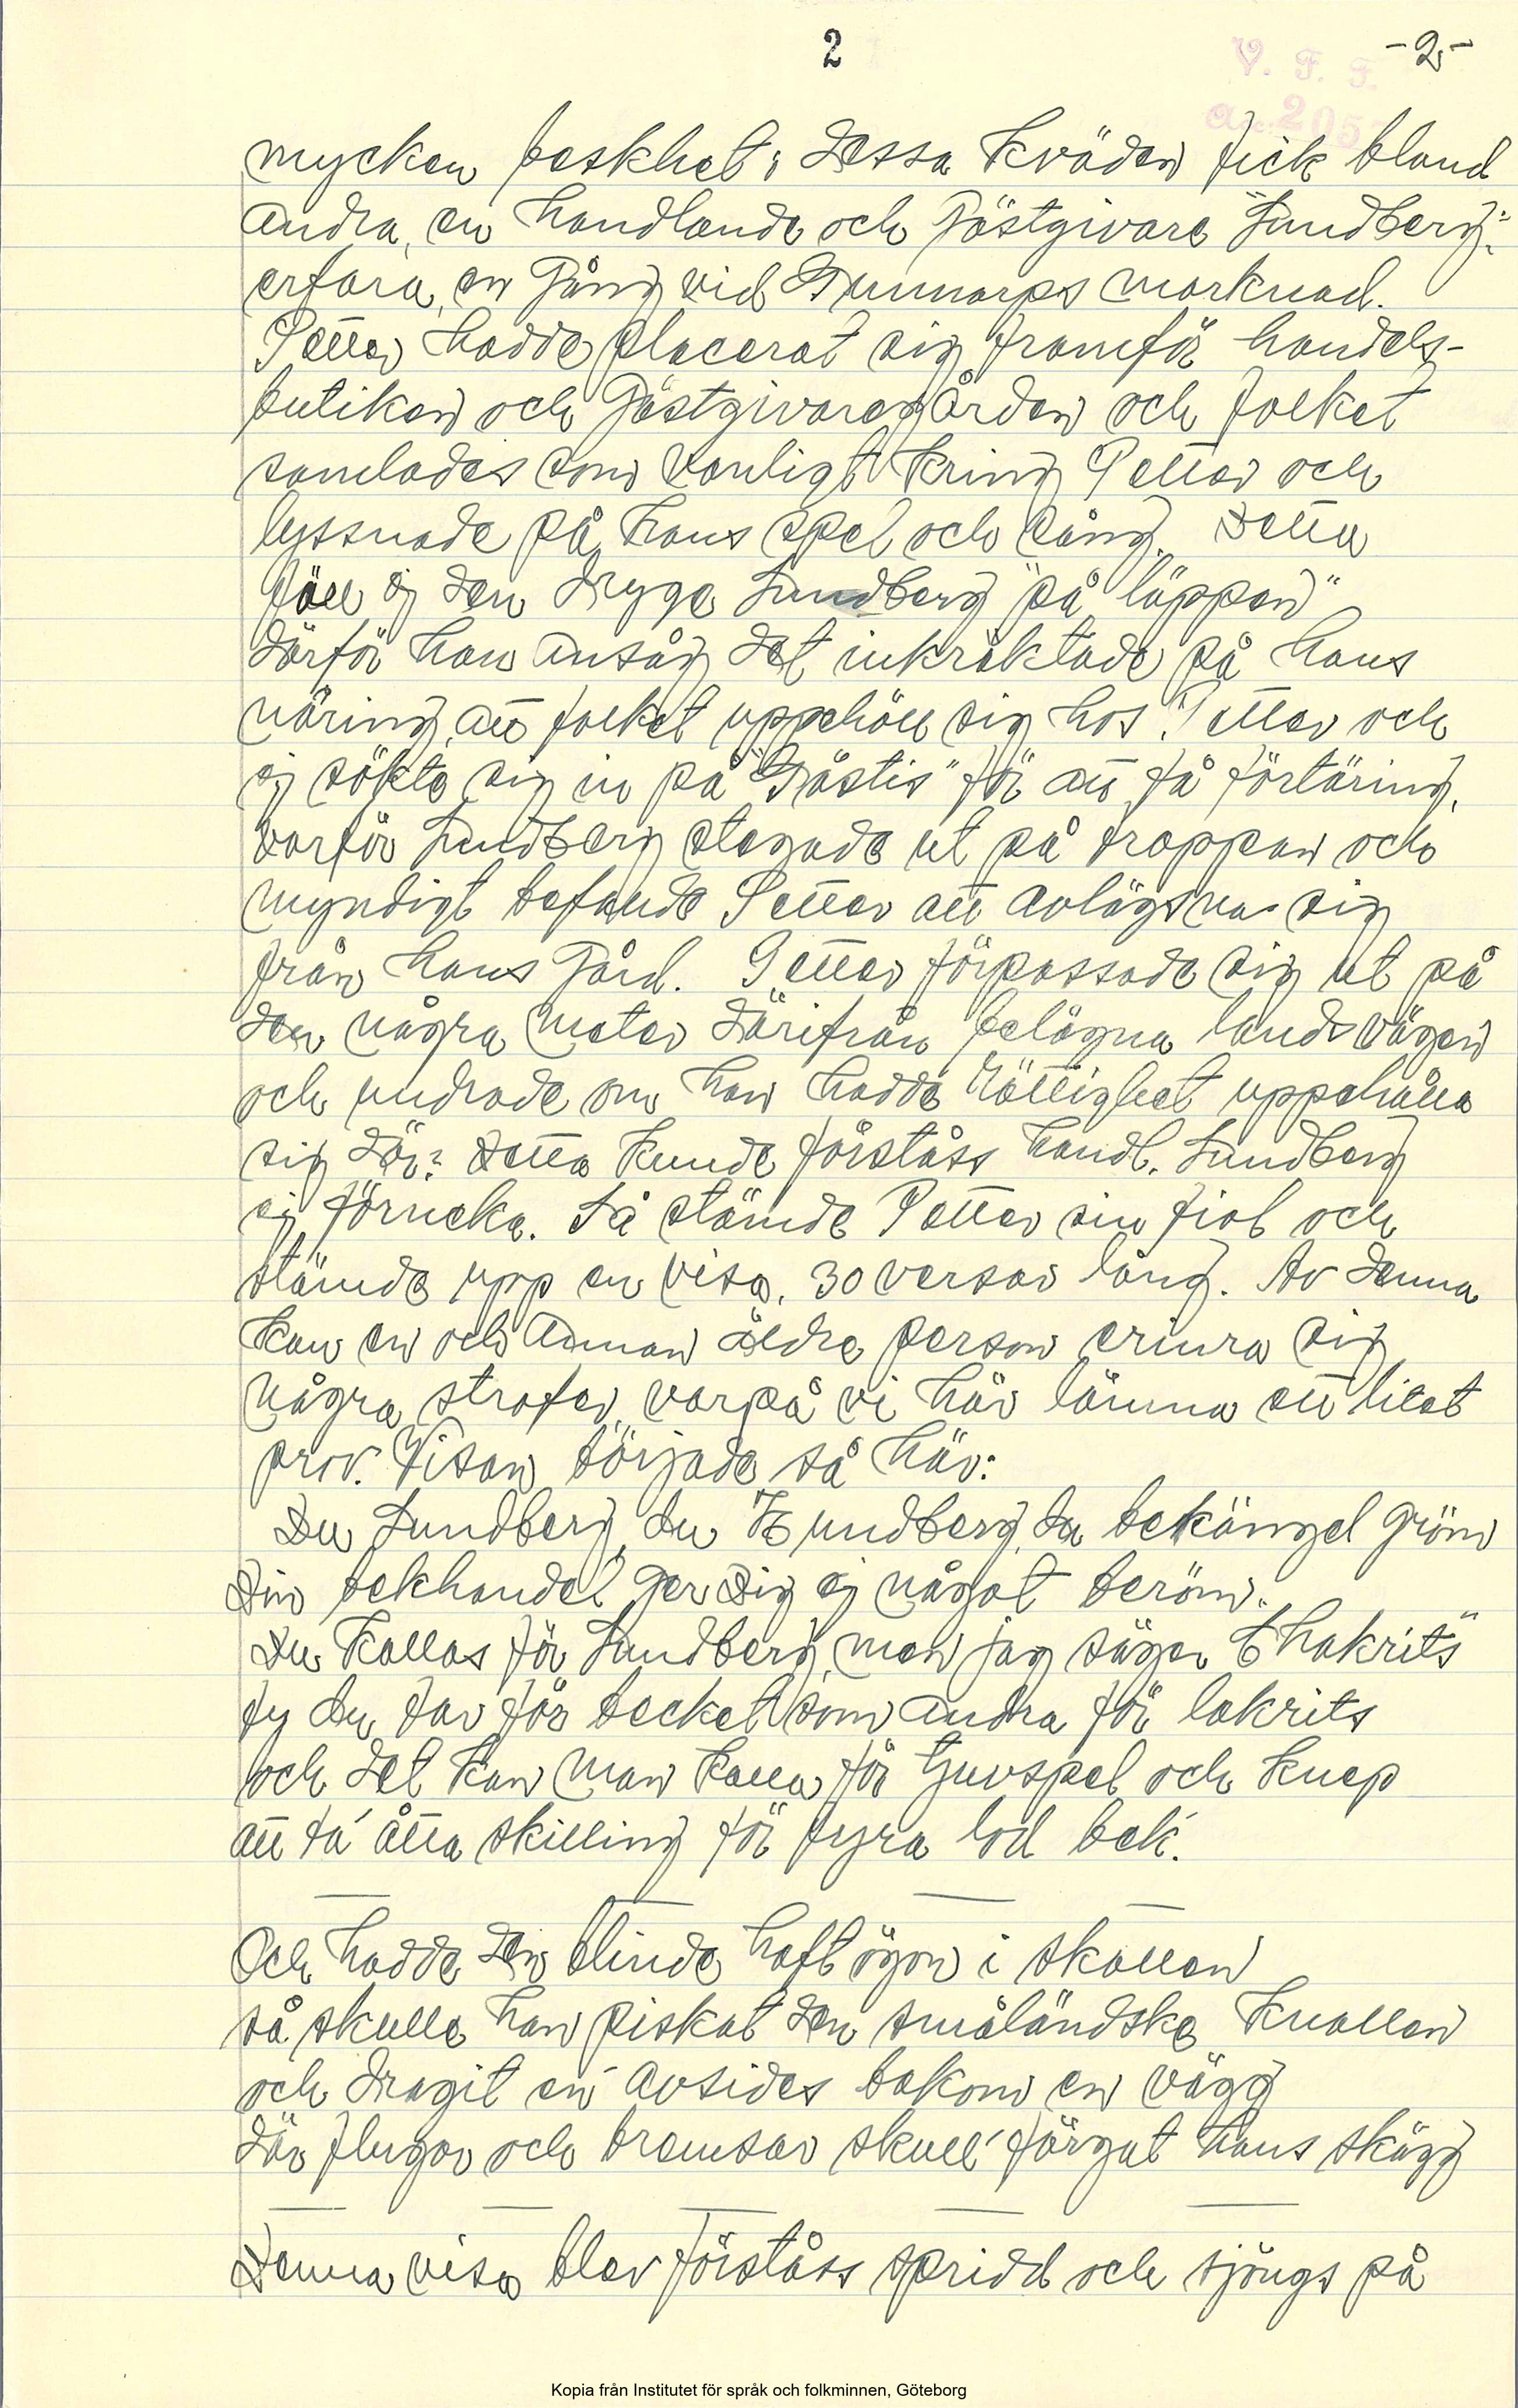 2
-2-
V. F. F.
mycken beskhet i dessa kväden fick bland
andra, en handlande och Gästgivare "Lundberg"
erfara, en gång vid Gunnarps marknad.
Petter hade placerat sig framför handels-
butiken och Gästgivaregården och folket
samlades som vanligt kring Petter och
lyssnade på hans spel och sång. Detta
föll ej den dryge Lundberg "på läppen"
därför han ansåg det inkräktade på hans
näring, att folket uppehöll sig hos Petter och
ej sökte sig in på "Gästis" för att få förtäring,
varför Lundberg stegade ut på trappan och
myndigt befallde Petter att avlägsna sig
från hans gård. Petter förpassade sig ut på
den några meter därifrån belägna landsvägen
och undrade om han hade rättighet uppehålla
sig där? Detta kunde förståss handl. Lundberg
ej förneka. Så stämde Petter sin fiol och
stämde upp en visa, 30 verser lång. Av denna
kan en och annan äldre person erinra sig
några strofer, varpå vi här lämna ett litet
prov. Visan började så här:
Du Lundberg, du Hundberg, du bekängel grön
Din bekhandel ger Dig ej något beröm.
Du kallas för Lundberg, men jag säger
ty du tar för becket som andra för lakrits
och det kan man kalla för tjuvspel och knep
att ta' åtta skilling för fyra lod bek'.
Och hade den blinde haft ögon i skallen
så skulle han piskat den småländske knallen
och dragit en' avsides bakom en vägg
där flugor och bromsar skull' färgat hans skägg
Denna visa blev förståss spridd och sjöngs på
Kopia från Institutet för språk och folkminnen, Göteborg